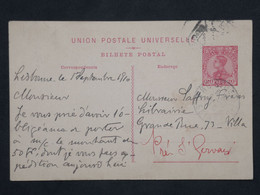 UNION POSTALE UNIVERSELLE
BILHETE POSTAL
Correspondencia
Endereço
Lisbonne le 1 Septembre 1910
Monsieur
Je vous prie d'avoir l'o-
bligeance de porter
à le montant de
50 dont je vous fais ex-
pédition aujourd'hui
Monsieur Frères
Librairie
Grande Rue, 73 - Villa
Pré St Gervais